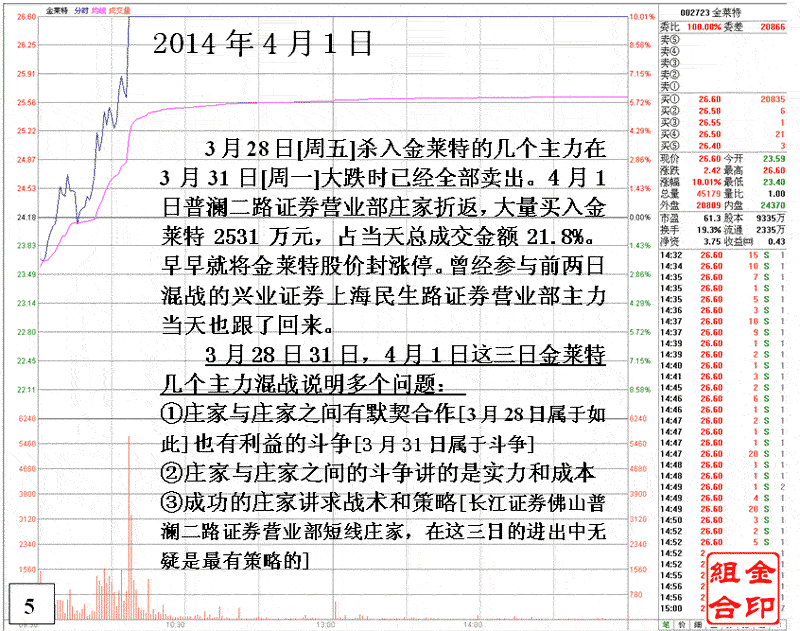 金莱特 分时 均线 成交量
002723 金莱特
2014年4月1日
3月28日[周五]杀入金莱特的几个主力在
3月31日[周一]大跌时已经全部卖出。4月1
日普澜二路证券营业部庄家折返，大量买入金
莱特 2531 万元，占当天总成交金额 21.8%。
早早就将金莱特股价封涨停。曾经参与前两日
混战的兴业证券上海民生路证券营业部主力
当天也跟了回来。
3月28日31日，4月1日这三日金莱特
几个主力混战说明多个问题：
①庄家与庄家之间有默契合作[3月28日属于如
此]也有利益的斗争[3月31日属于斗争]
②庄家与庄家之间的斗争讲的是实力和成本
③成功的庄家讲求战术和策略[长江证券佛山普
澜二路证券营业部短线庄家，在这三日的进出中无
疑是最有策略的]
5
26.60
26.25
25.91
25.56
25.22
24.87
24.53
24.18
23.83
23.49
23.14
22.80
22.45
22.11
6240
5460
4680
3900
3120
2340
1560
780
10.01%
8.58%
7.15%
5.72%
4.29%
2.86%
1.43%
0.00%
1.43%
2.86%
4.29%
5.72%
7.15%
8.58%
6240
5460
4680
3900
3120
2340
1560
780
10:30
13:00
14:00
委比 100.00% 委差 20866
卖⑤
卖④
卖③
卖②
卖①
买① 26.60 20835
买② 26.58 6
买③ 26.55 1
买④ 26.50 21
买⑤ 26.40 3
现价 26.60 今开 23.59
涨跌 2.42 最高 26.60
涨幅 10.01% 最低 23.40
总量 45179 量比 1.00
外盘 20809 内盘 24370
市盈 61.3 股本 9335万
换手 19.3% 流通 2335万
净资 3.75 收益㈣ 0.43
14:32 26.60 15 S 1
14:34 26.60 10 S 1
14:35 26.60 7 S 1
14:35 26.60 1 S 1
14:35 26.60 5 S 1
14:36 26.60 3 S 1
14:37 26.60 10 S 1
14:37 26.60 9 S 1
14:39 26.60 1 S 1
14:39 26.60 2 S 1
14:40 26.60 1 S 1
14:41 26.60 3 S 1
14:45 26.60 2 S 1
14:46 26.60 6 S 1
14:46 26.60 1 S 1
14:47 26.60 2 S 1
14:47 26.60 1 S 1
14:47 26.60 1 S 1
14:47 26.60 20 S 1
14:48 26.60 1 S 1
14:48 26.60 1 S 1
14:49 26.60 1 S 2
14:49 26.60 4 S 1
14:49 26.60 20 S 1
14:50 26.60 3 S 1
14:52 26.60 2 S 1
14:52 26.60 5 S 1
14:52
14:52
14:55
14:56
14:56
15:00
金印組合
笔 价 细